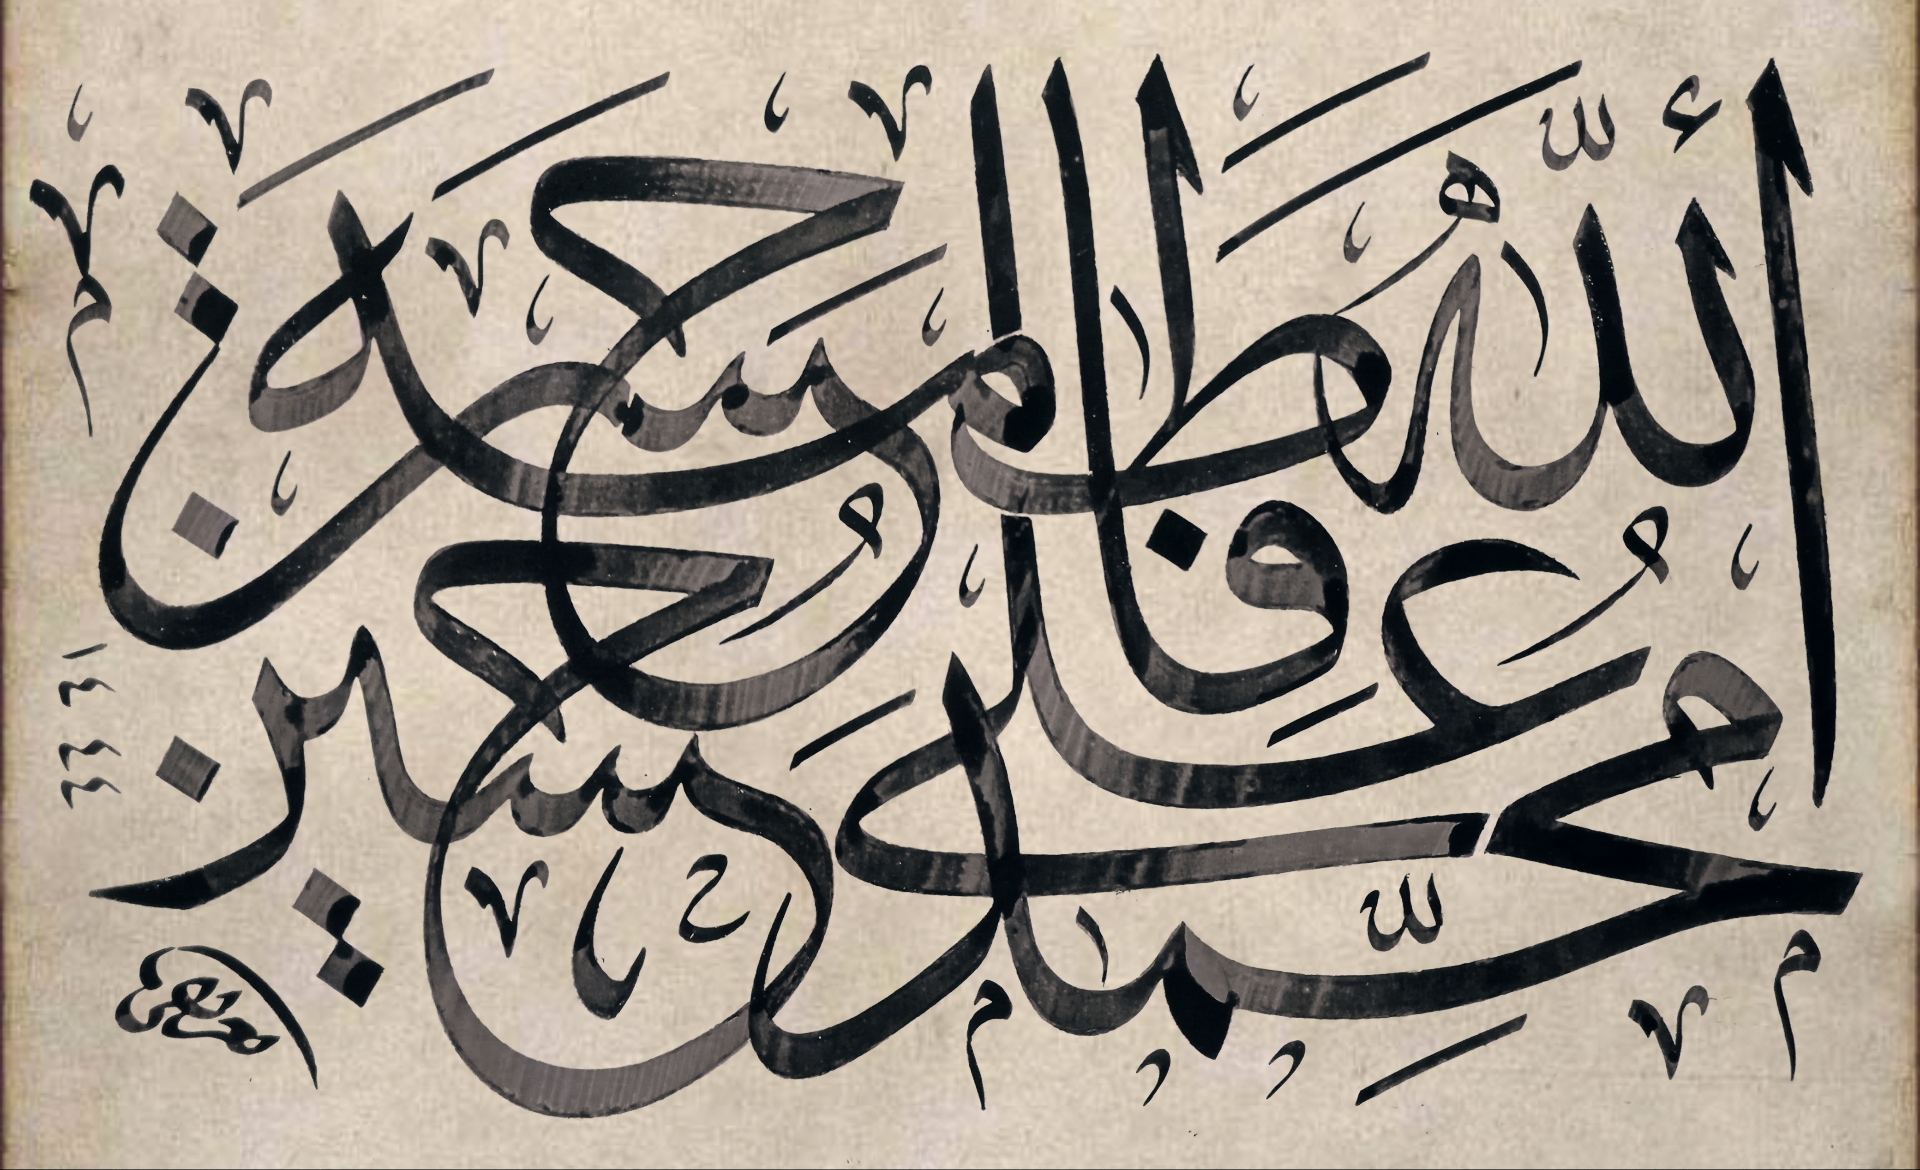 الله
محمد
علي
فاطمة
حسن
حسين